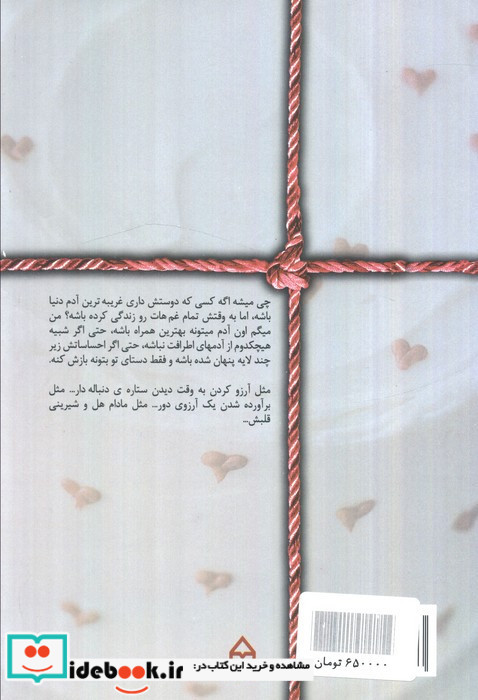 چی میشه اگه کسی که دوستش داری غریبه ترین آدم دنیا
باشه، اما به وقتش تمام غم هات رو زندگی کرده باشه؟ من
میگم اون آدم میتونه بهترین همراه باشه، حتی اگر شبیه
هیچکدوم از آدمهای اطرافت نباشه، حتی اگر احساساتش زیر
چند لایه پنهان شده باشه و فقط دستای تو بتونه بازش کنه.
مثل آرزو کردن به وقت دیدن ستاره ی دنباله دار... مثل
برآورده شدن یک آرزوی دور... مثل مادام هل و شیرینی
قلبش...
۶۵۰۰۰۰ تومان
مشاهده و خرید این کتاب در:
idebook.ir